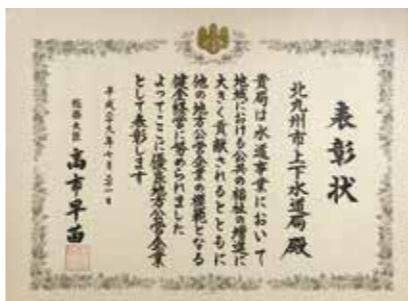 表彰状
北九州市上下水道局殿
貴局は水道事業において
地域における公共の福祉の増進に
大きく貢献されるとともに
他の地方公営企業の模範となる
健全経営に努められました
よってここに優良地方公営企業
として表彰します
総務大臣 高市早苗